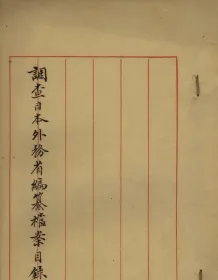 調查日本外務省編纂檔案目錄